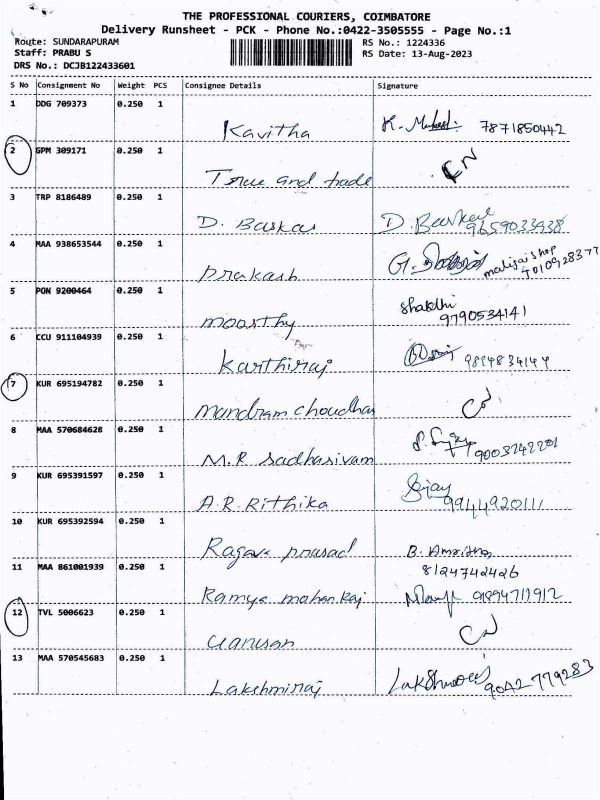 THE PROFESSIONAL COURIERS, COIMBATORE
Delivery Runsheet - PCK - Phone No.:0422-3505555 - Page No.:1
Route: SUNDARAPURAM RS No.: 1224336
Staff: PRABU S RS Date: 13-Aug-2023
DRS No.: DCJB122433601
S No Consignment No Weight PCS Consignee Details Signature
1 DDG 709373 0.250 1
Kavitha K. 7871850442
2 GPM 309171 0.250 1
Time and trade
3 TRP 8186489 0.250 1
D. Baskar D. Baskar 9659033938
4 MAA 938653544 0.250 1
Prakash G. maligai shop 7010928377
5 PON 9200464 0.250 1
moorthy Shakthi 9790534141
6 CCU 911104939 0.250 1
Karthiraj 9894834144
7 KUR 695194782 0.250 1
mandram choudhar
8 MAA 570684628 0.250 1
M.R Sadhasivam 9003242201
9 KUR 695391597 0.250 1
A.R. Rithika 9944920111
10 KUR 695392594 0.250 1
Ragava prasad B.
11 MAA 861001939 0.250 1 8124742426
Ramya mohan Raj 9894711912
12 TVL 5006623 0.250 1
13 MAA 570545683 0.250 1
Lakshmiraj 9042779283